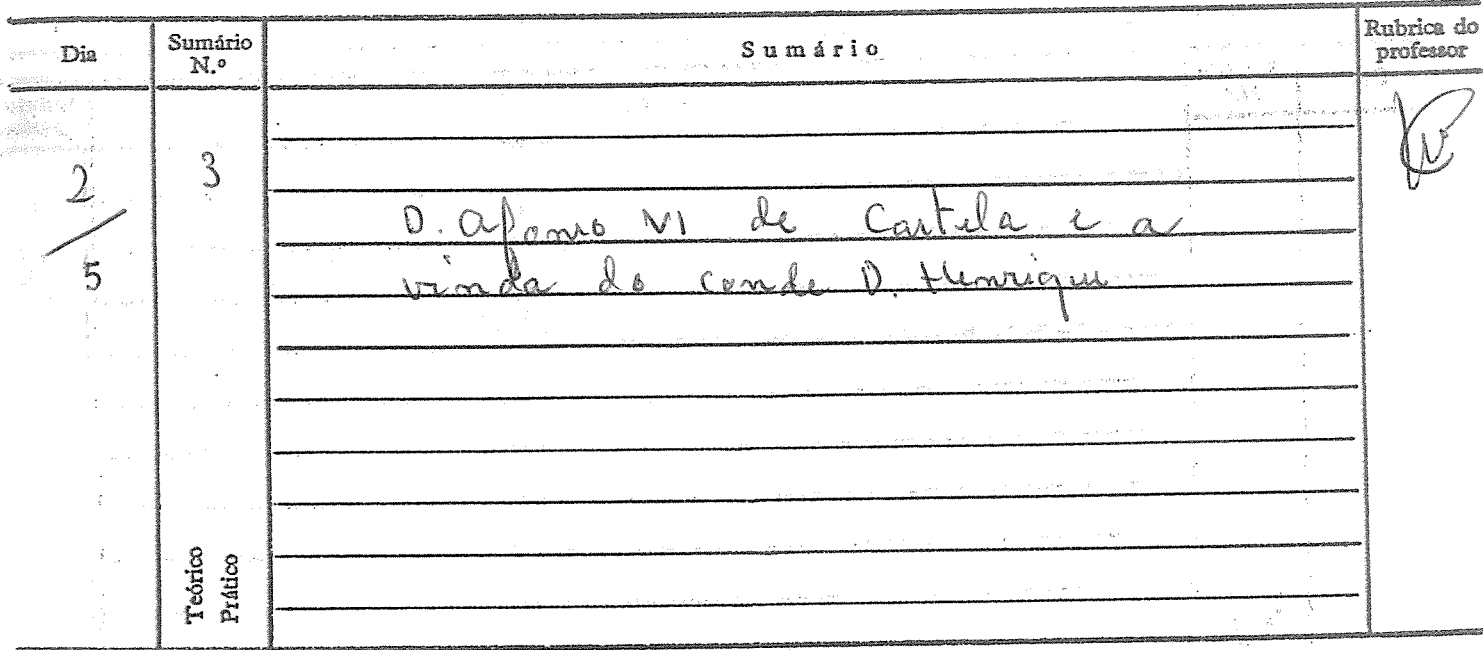 Dia
Sumário N.º
Sumário
Rubrica do professor
2/5
3
D. Afonso VI de Castela e a
vinda do conde D. Henrique
Teórico
Prático